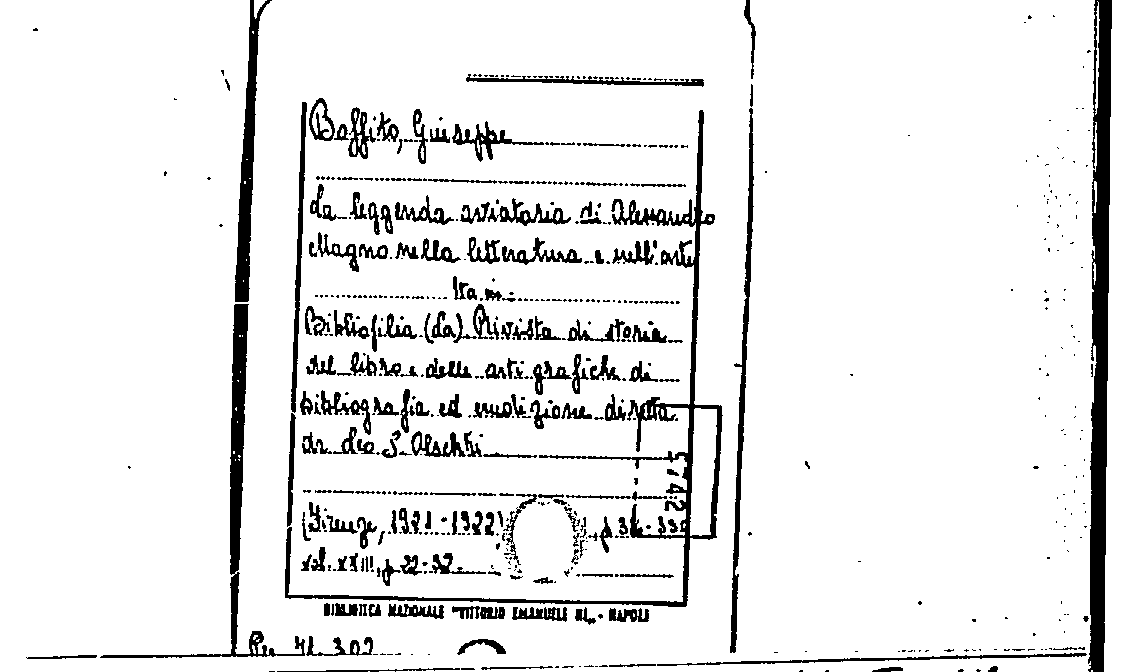 Boffito, Giuseppe
La leggenda aviatoria di Alessandro
Magno nella letteratura e nell'arte
Ita in:
Bibliofilia (La). Rivista di storia
del libro e delle arti grafiche di
bibliografia ed erudizione diretta
da Leo S. Olschki
5742
(Firenze, 1921-1922)
vol. XXIII, p. 22-32.
BIBLIOTECA NAZIONALE "VITTORIO EMANUELE III„ - NAPOLI